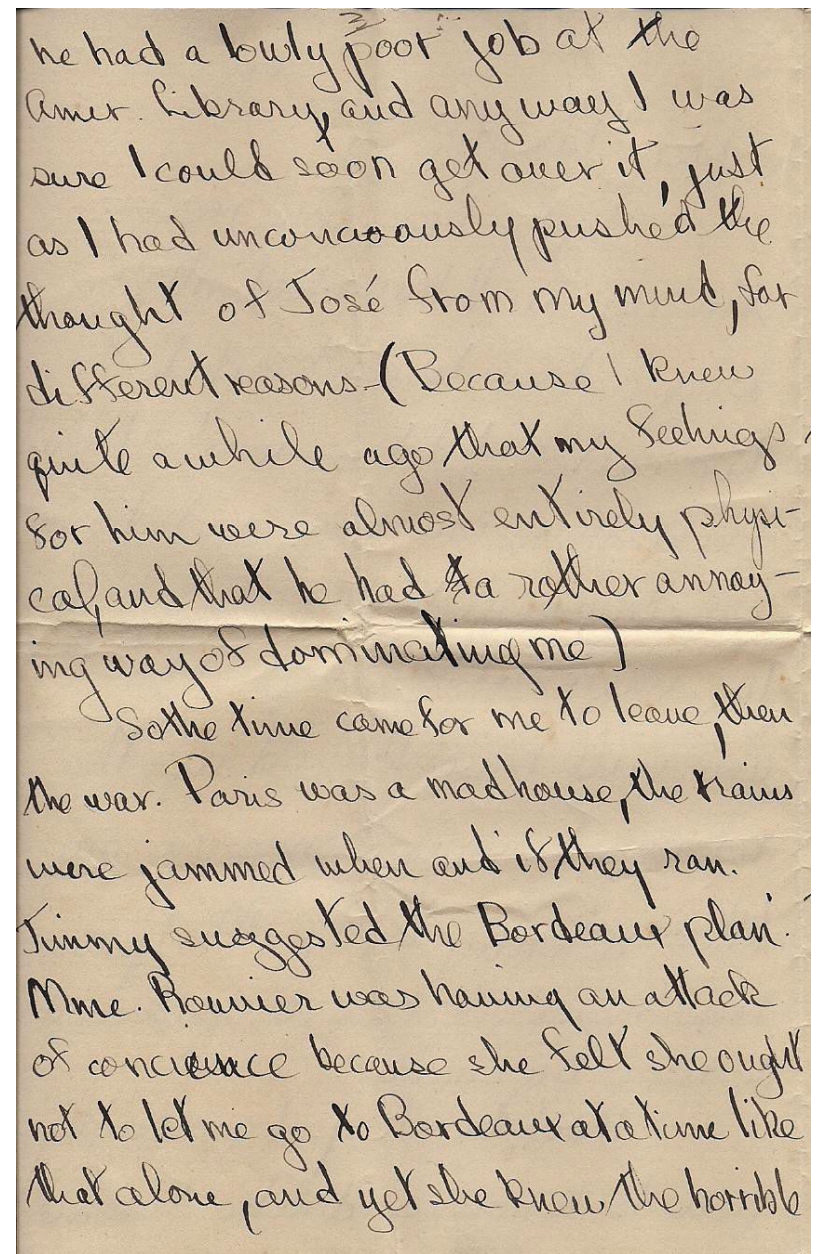 he had a lowly poor job at the
Amer. Library, and anyway I was
sure I could soon get over it, just
as I had unconciously pushed the
thought of José from my mind, for
different reasons - (Because I knew
quite awhile ago that my feelings
for him were almost entirely physi-
cal, and that he had a rather annoy-
ing way of dominating me)
So the time came for me to leave, then
the war. Paris was a madhouse, the trains
were jammed when and if they ran.
Jimmy suggested the Bordeaux plan.
Mme. Bouvier was having an attack
of concience because she felt she ought
not to let me go to Bordeaux at a time like
that alone, and yet she knew the horrible